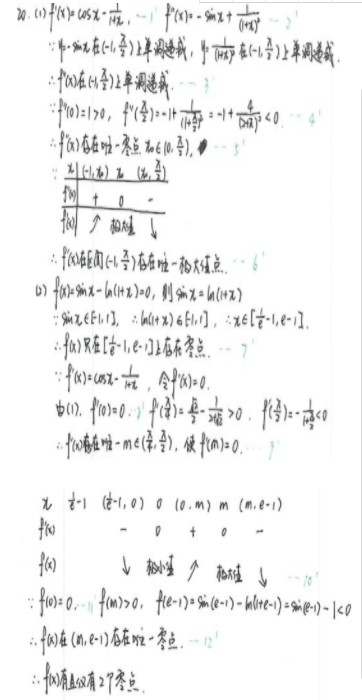 20. (1) f'(x)=cosx-1/(1+x), --1' f''(x)=-sinx+1/(1+x)² --2'
∵ y=-sinx在(-1,π/2)上单调递减, y=1/(1+x)²在(-1,π/2)上单调递减,
∴ f''(x)在(-1,π/2)上单调递减. --3'
∵ f''(0)=1>0, f''(π/2)=-1+1/(1+π/2)²=-1+4/(2+π)²<0. --4'
∴ f''(x)存在唯一零点x₀∈(0,π/2), --5'
x (-1,x₀) x₀ (x₀,π/2)
f''(x) + 0 -
f'(x) ↗ 极大值 ↓
∴ f'(x)在区间(-1,π/2)存在唯一极大值点. --6'
(2) f(x)=sinx-ln(1+x)=0, 则sinx=ln(1+x)
∵ sinx∈[-1,1], ∴ ln(1+x)∈[-1,1], ∴ x∈[1/e-1,e-1].
∴ f(x)只在[1/e-1,e-1]上存在零点. --7'
∵ f'(x)=cosx-1/(1+x), 令f'(x)=0.
由(1), f'(0)=0. f'(π/4)=√2/2- >0. f'(π/2)=-1/(1+π/2)<0
∴ f'(x)存在唯一m∈(π/4,π/2), 使f'(m)=0. --9'
x 1/e-1 (1/e-1,0) 0 (0,m) m (m,e-1)
f'(x) - 0 + 0 -
f(x) ↓ 极小值 ↗ 极大值 ↓ --10'
∵ f(0)=0, --11' f(m)>0, f(e-1)=sin(e-1)-ln(1+e-1)=sin(e-1)-1<0
∴ f(x)在(m,e-1)存在唯一零点. --12'
∴ f(x)有且仅有2个零点.